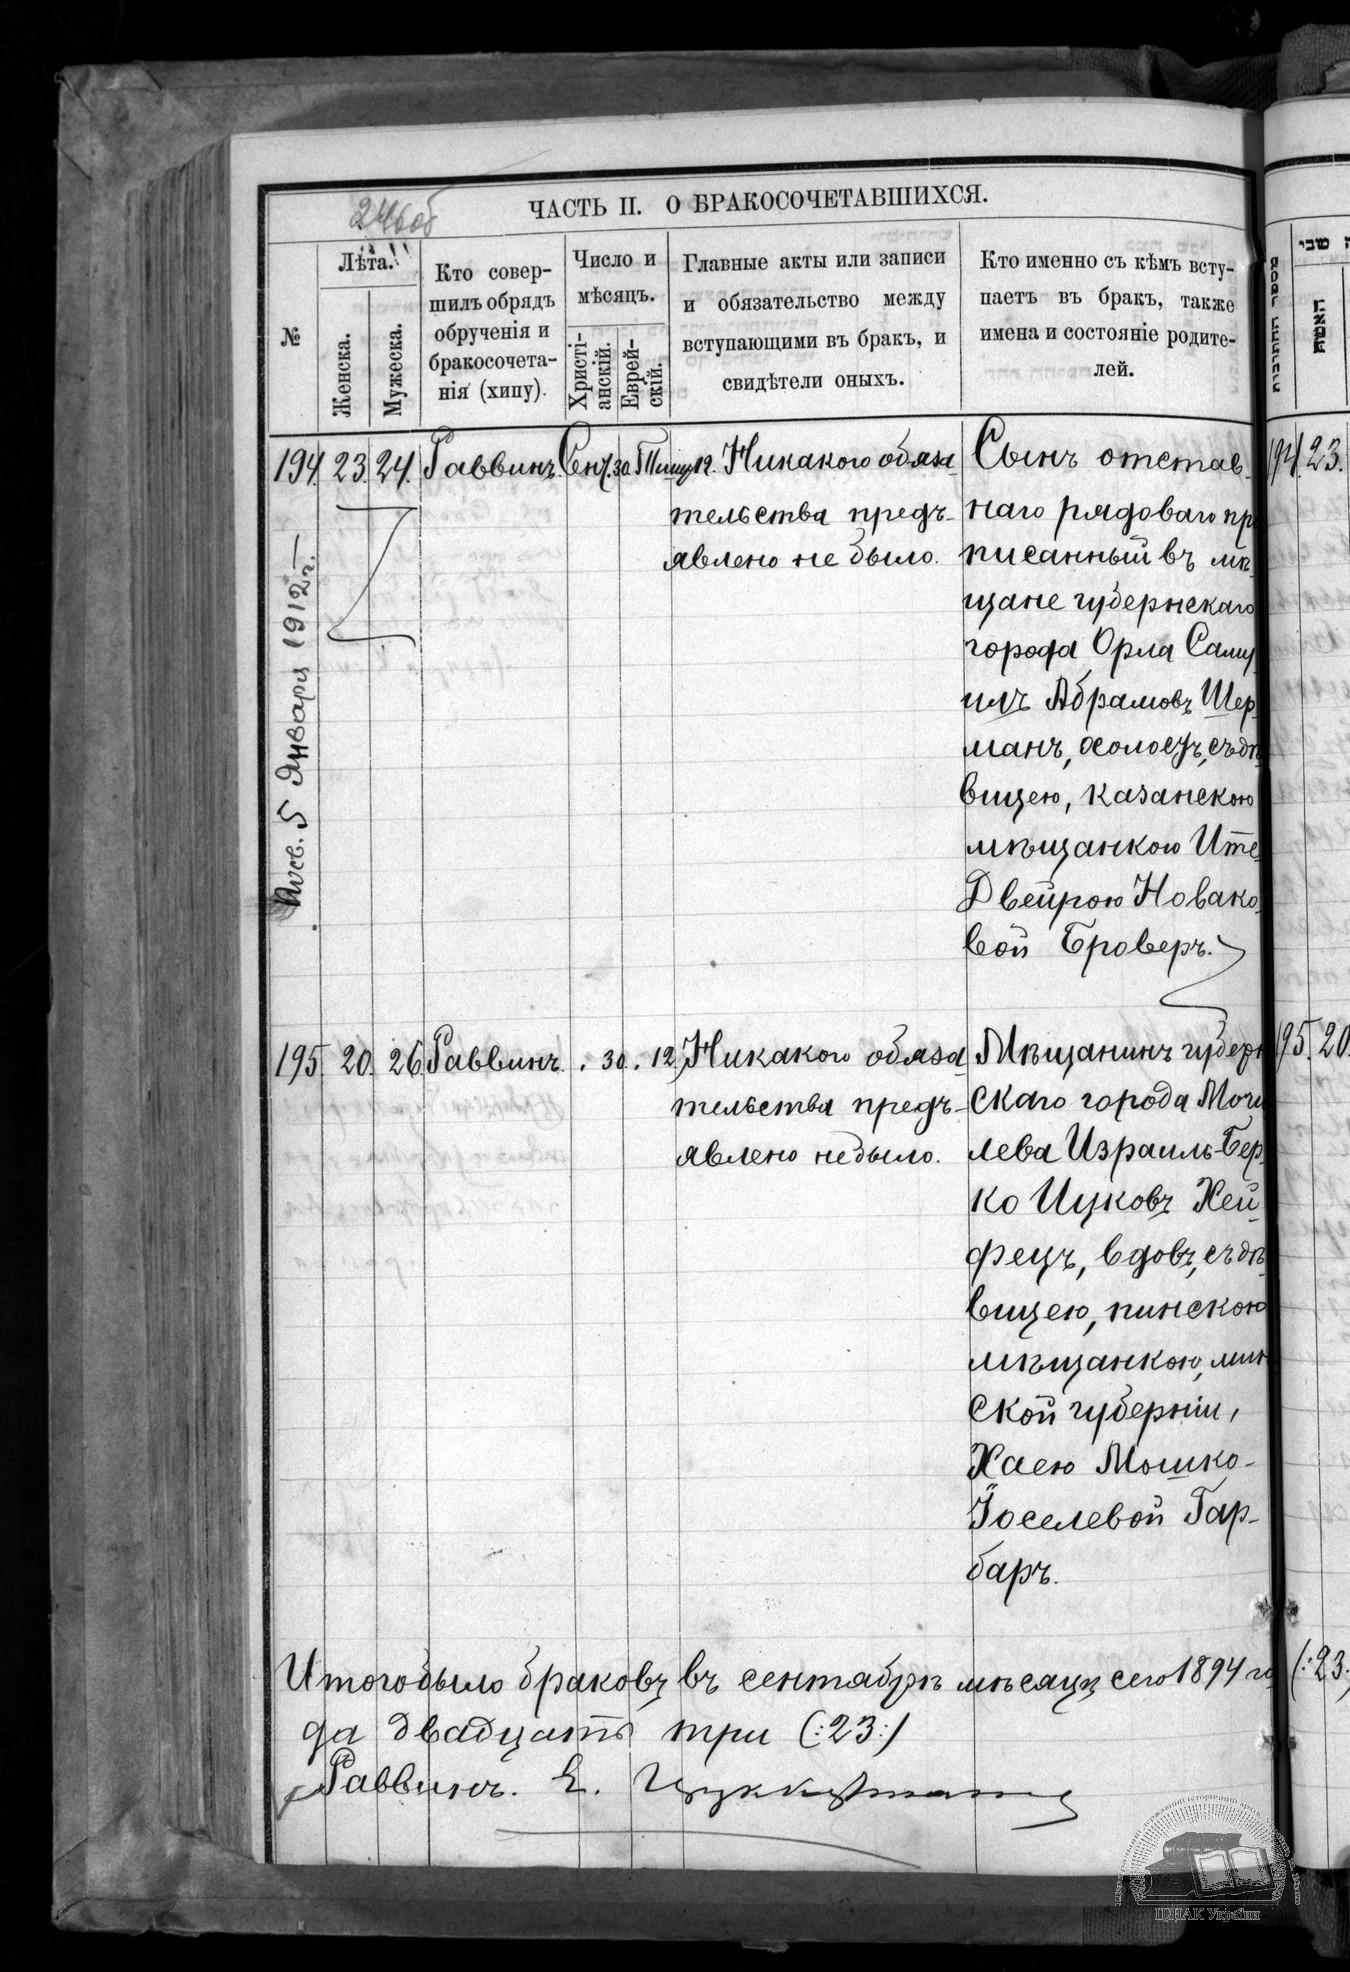 ЧАСТЬ II. О БРАКОСОЧЕТАВШИХСЯ.
246об
№
Лѣта.
Женска.
Мужеска.
Кто совер-
шилъ обрядъ
обрученія и
бракосочета-
нія (хипу).
Число и
мѣсяцъ.
Христі-
анскій.
Еврей-
скій.
Главные акты или записи
и обязательство между
вступающими въ бракъ, и
свидѣтели оныхъ.
Кто именно съ кѣмъ всту-
паетъ въ бракъ, также
имена и состояніе родите-
лей.
מספר החתונות
האשה
שבי
194. 23. 24. Раввинъ. Сент. 30. Тишр. 12. Никакого обяза-
тельства предъ-
явлено не было.
Сынъ отстав-
наго рядоваго пр
писанный въ мѣ-
щане губернскаго
города Орла Саму-
илъ Абрамовъ Шер-
манъ, холостъ, съ дѣ-
вицею, казанскою
мѣщанкою Ите-
Двейрою Новако-
вой Броверъ.
5 Января 1912 г.
195. 20. 26. Раввинъ. 30. 12. Никакого обяза-
тельства предъ-
явлено не было.
Мѣщанинъ губерн
скаго города Моги
лева Израиль-Бер-
ко Ицковъ Хей-
фецъ, вдовъ, съ дѣ-
вицею, пинскою
мѣщанкою, мин
ской губерніи,
Хаею Мошко-
Іоселевой Гар-
баръ.
Итого было браковъ въ сентябрѣ мѣсяцѣ сего 1894 го
да двадцать три (:23:)
Раввинъ. Е. Цуккерманъ
194. 23.
195. 20.
(:23:
ЦДІАК України